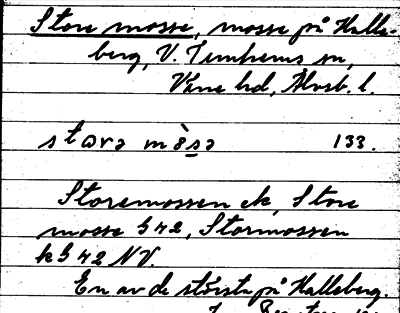 Store mosse, mosse på Halls-
berg, V. Tunhems sn,
Väne hd, Älvsb. l.
133.
Storemossen ek, Store
mosse G 42, Stormossen
k G 42 NV.
En av de största på Hallsberg.